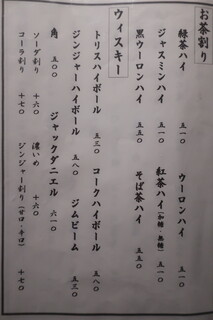 お茶割り
緑茶ハイ 五一〇
ウーロンハイ 五一〇
ジャスミンハイ 五一〇
紅茶ハイ(加糖・無糖) 五一〇
黒ウーロンハイ 五五〇
そば茶ハイ 五五〇
ウィスキー
トリスハイボール 五三〇
コークハイボール 五八〇
ジンジャーハイボール 五八〇
ジムビーム 五三〇
角 五〇〇
ジャックダニエル 六一〇
ソーダ割り +六〇
濃いめ +六〇
コーラ割り +七〇
ジンジャー割り(甘口・辛口) +七〇